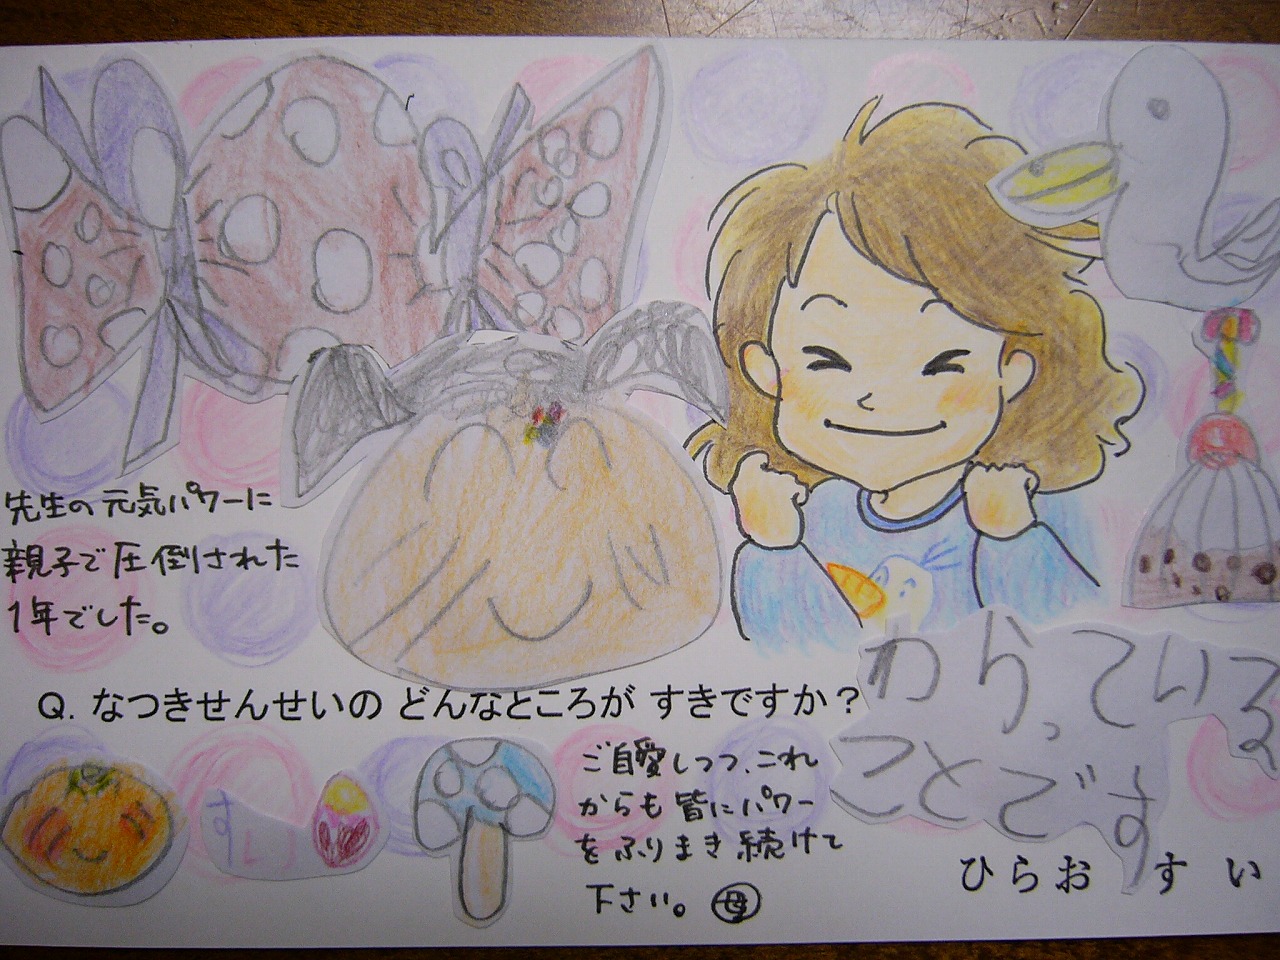 先生の元気パワーに
親子で圧倒された
1年でした。
Q. なつきせんせいの どんなところが すきですか？
わらっている
ことです
すい
ご自愛しつつ、これ
からも皆にパワー
をふりまき続けて
下さい。母
ひらお すい